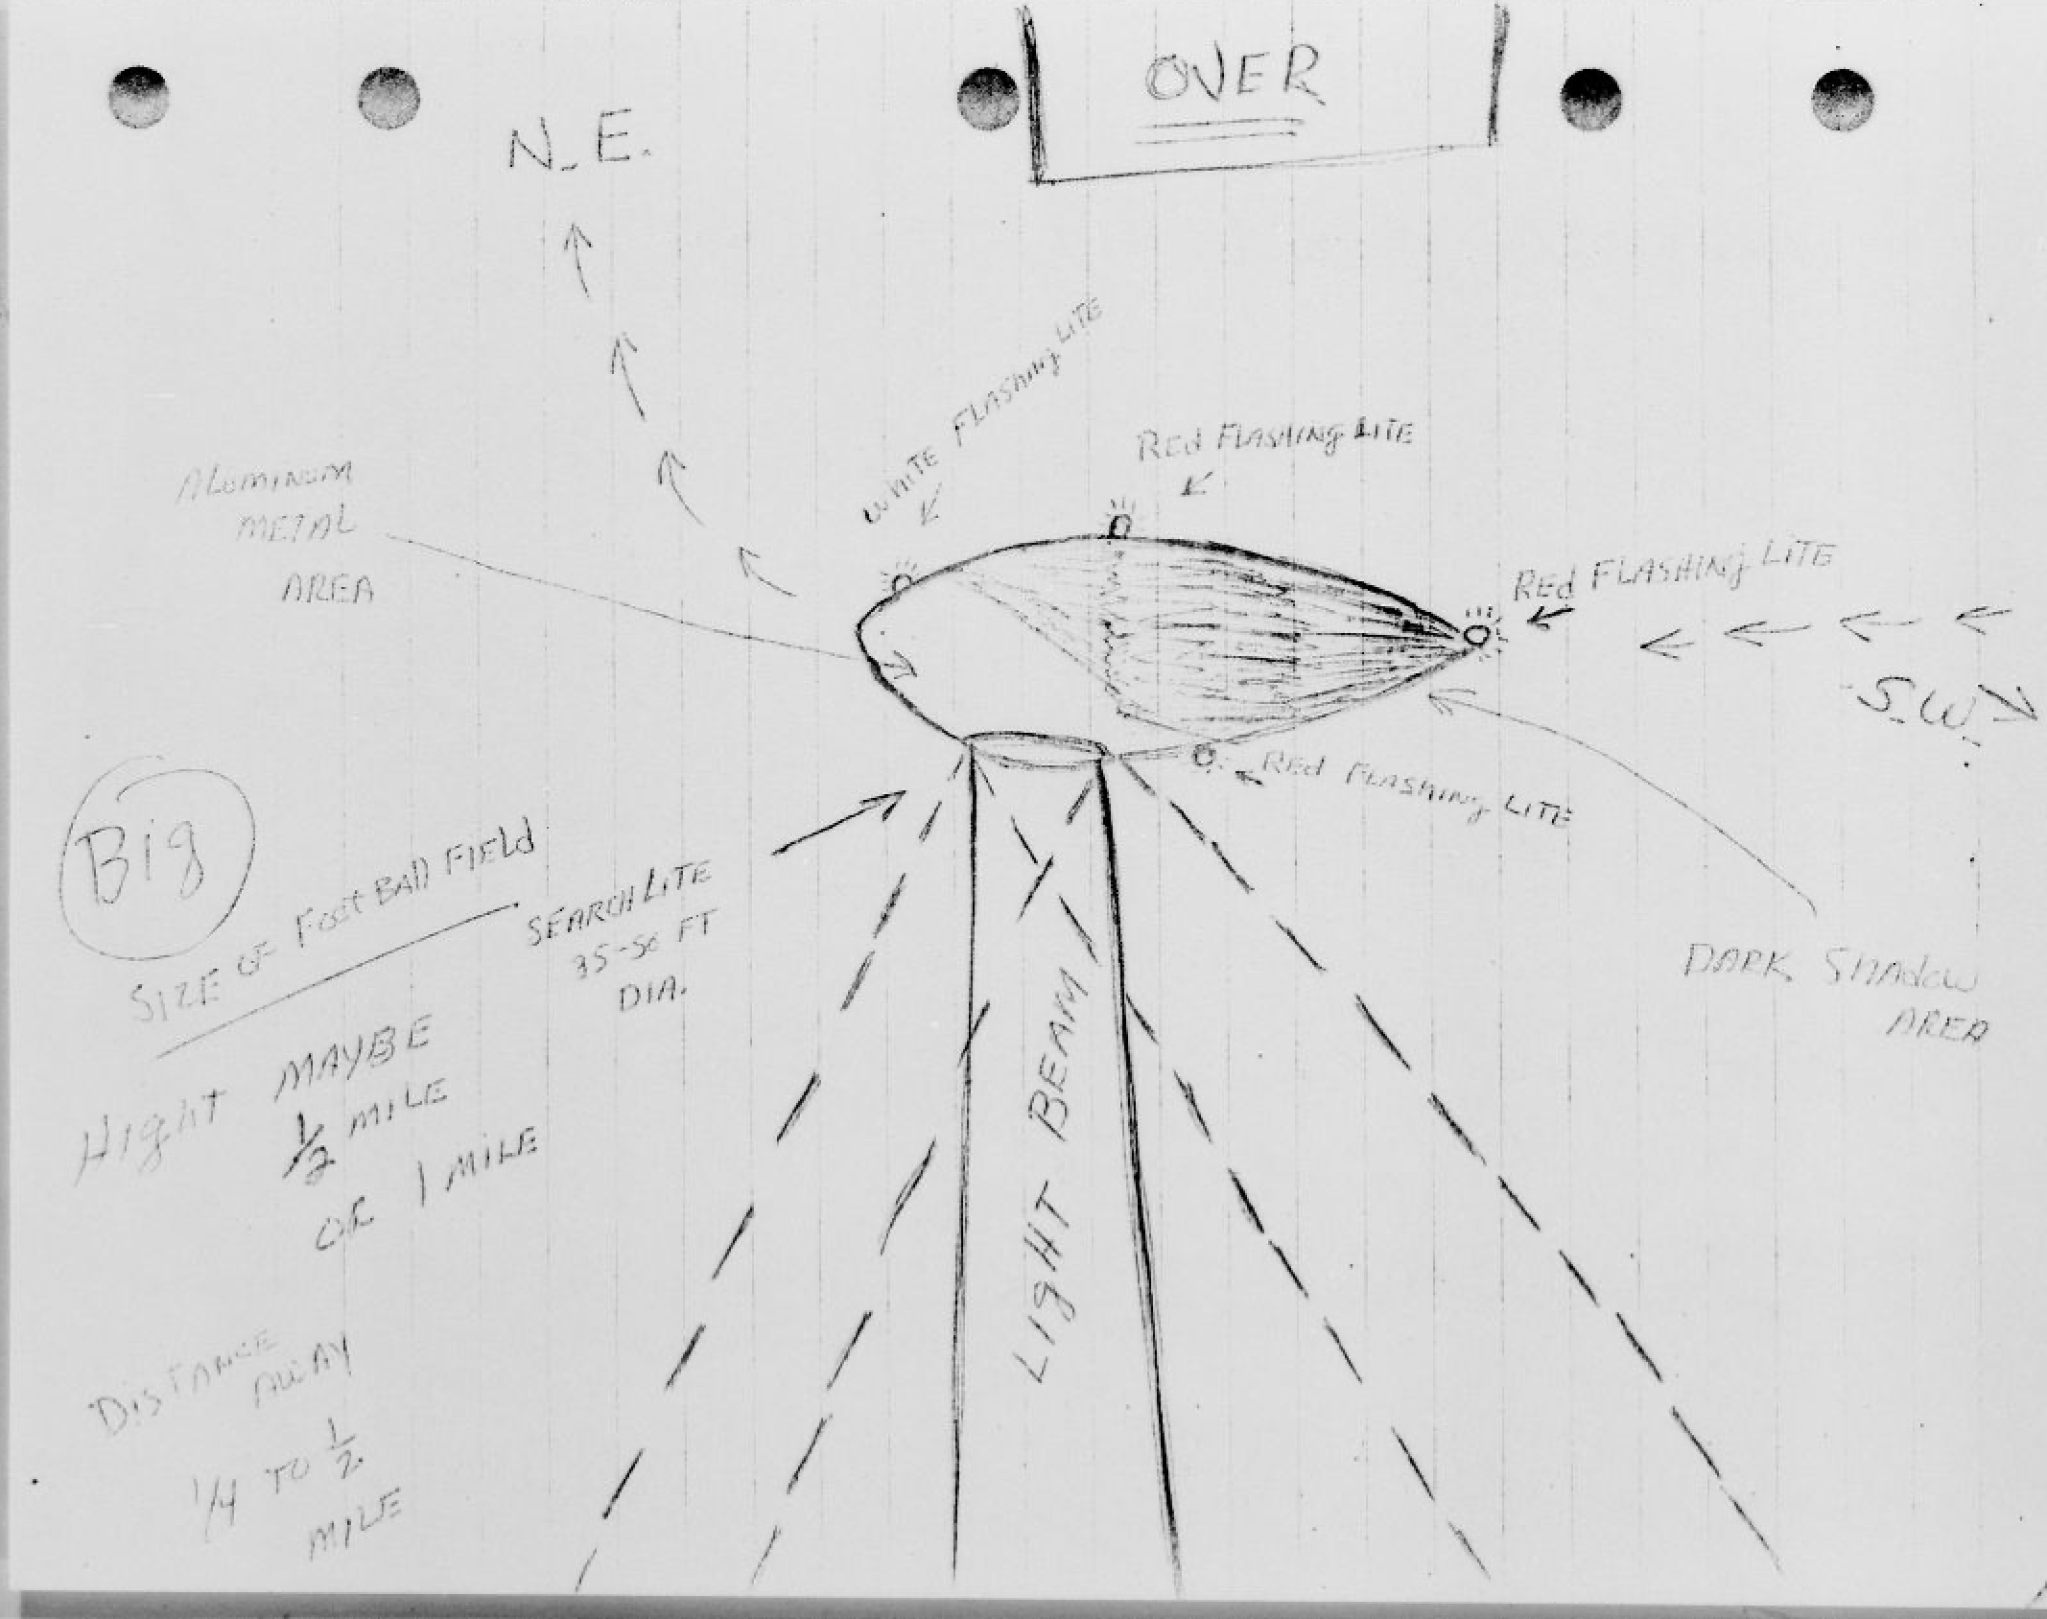 OVER
N.E.
WHITE FLASHING LITE
Red FLASHING LITE
ALUMINUM
METAL
AREA
REd FLASHING LITE
S.W.
REd FLASHING LITE
Big
SIZE OF FootBAll FIEld
SEARCHLITE
35-50 FT
DIA.
DARK SHAdow
AREA
HIgHT MAYBE
1/2 MILE
OR 1 MILE
LIgHT BEAM
DISTANCE
AWAY
1/4 TO 1/2
MILE